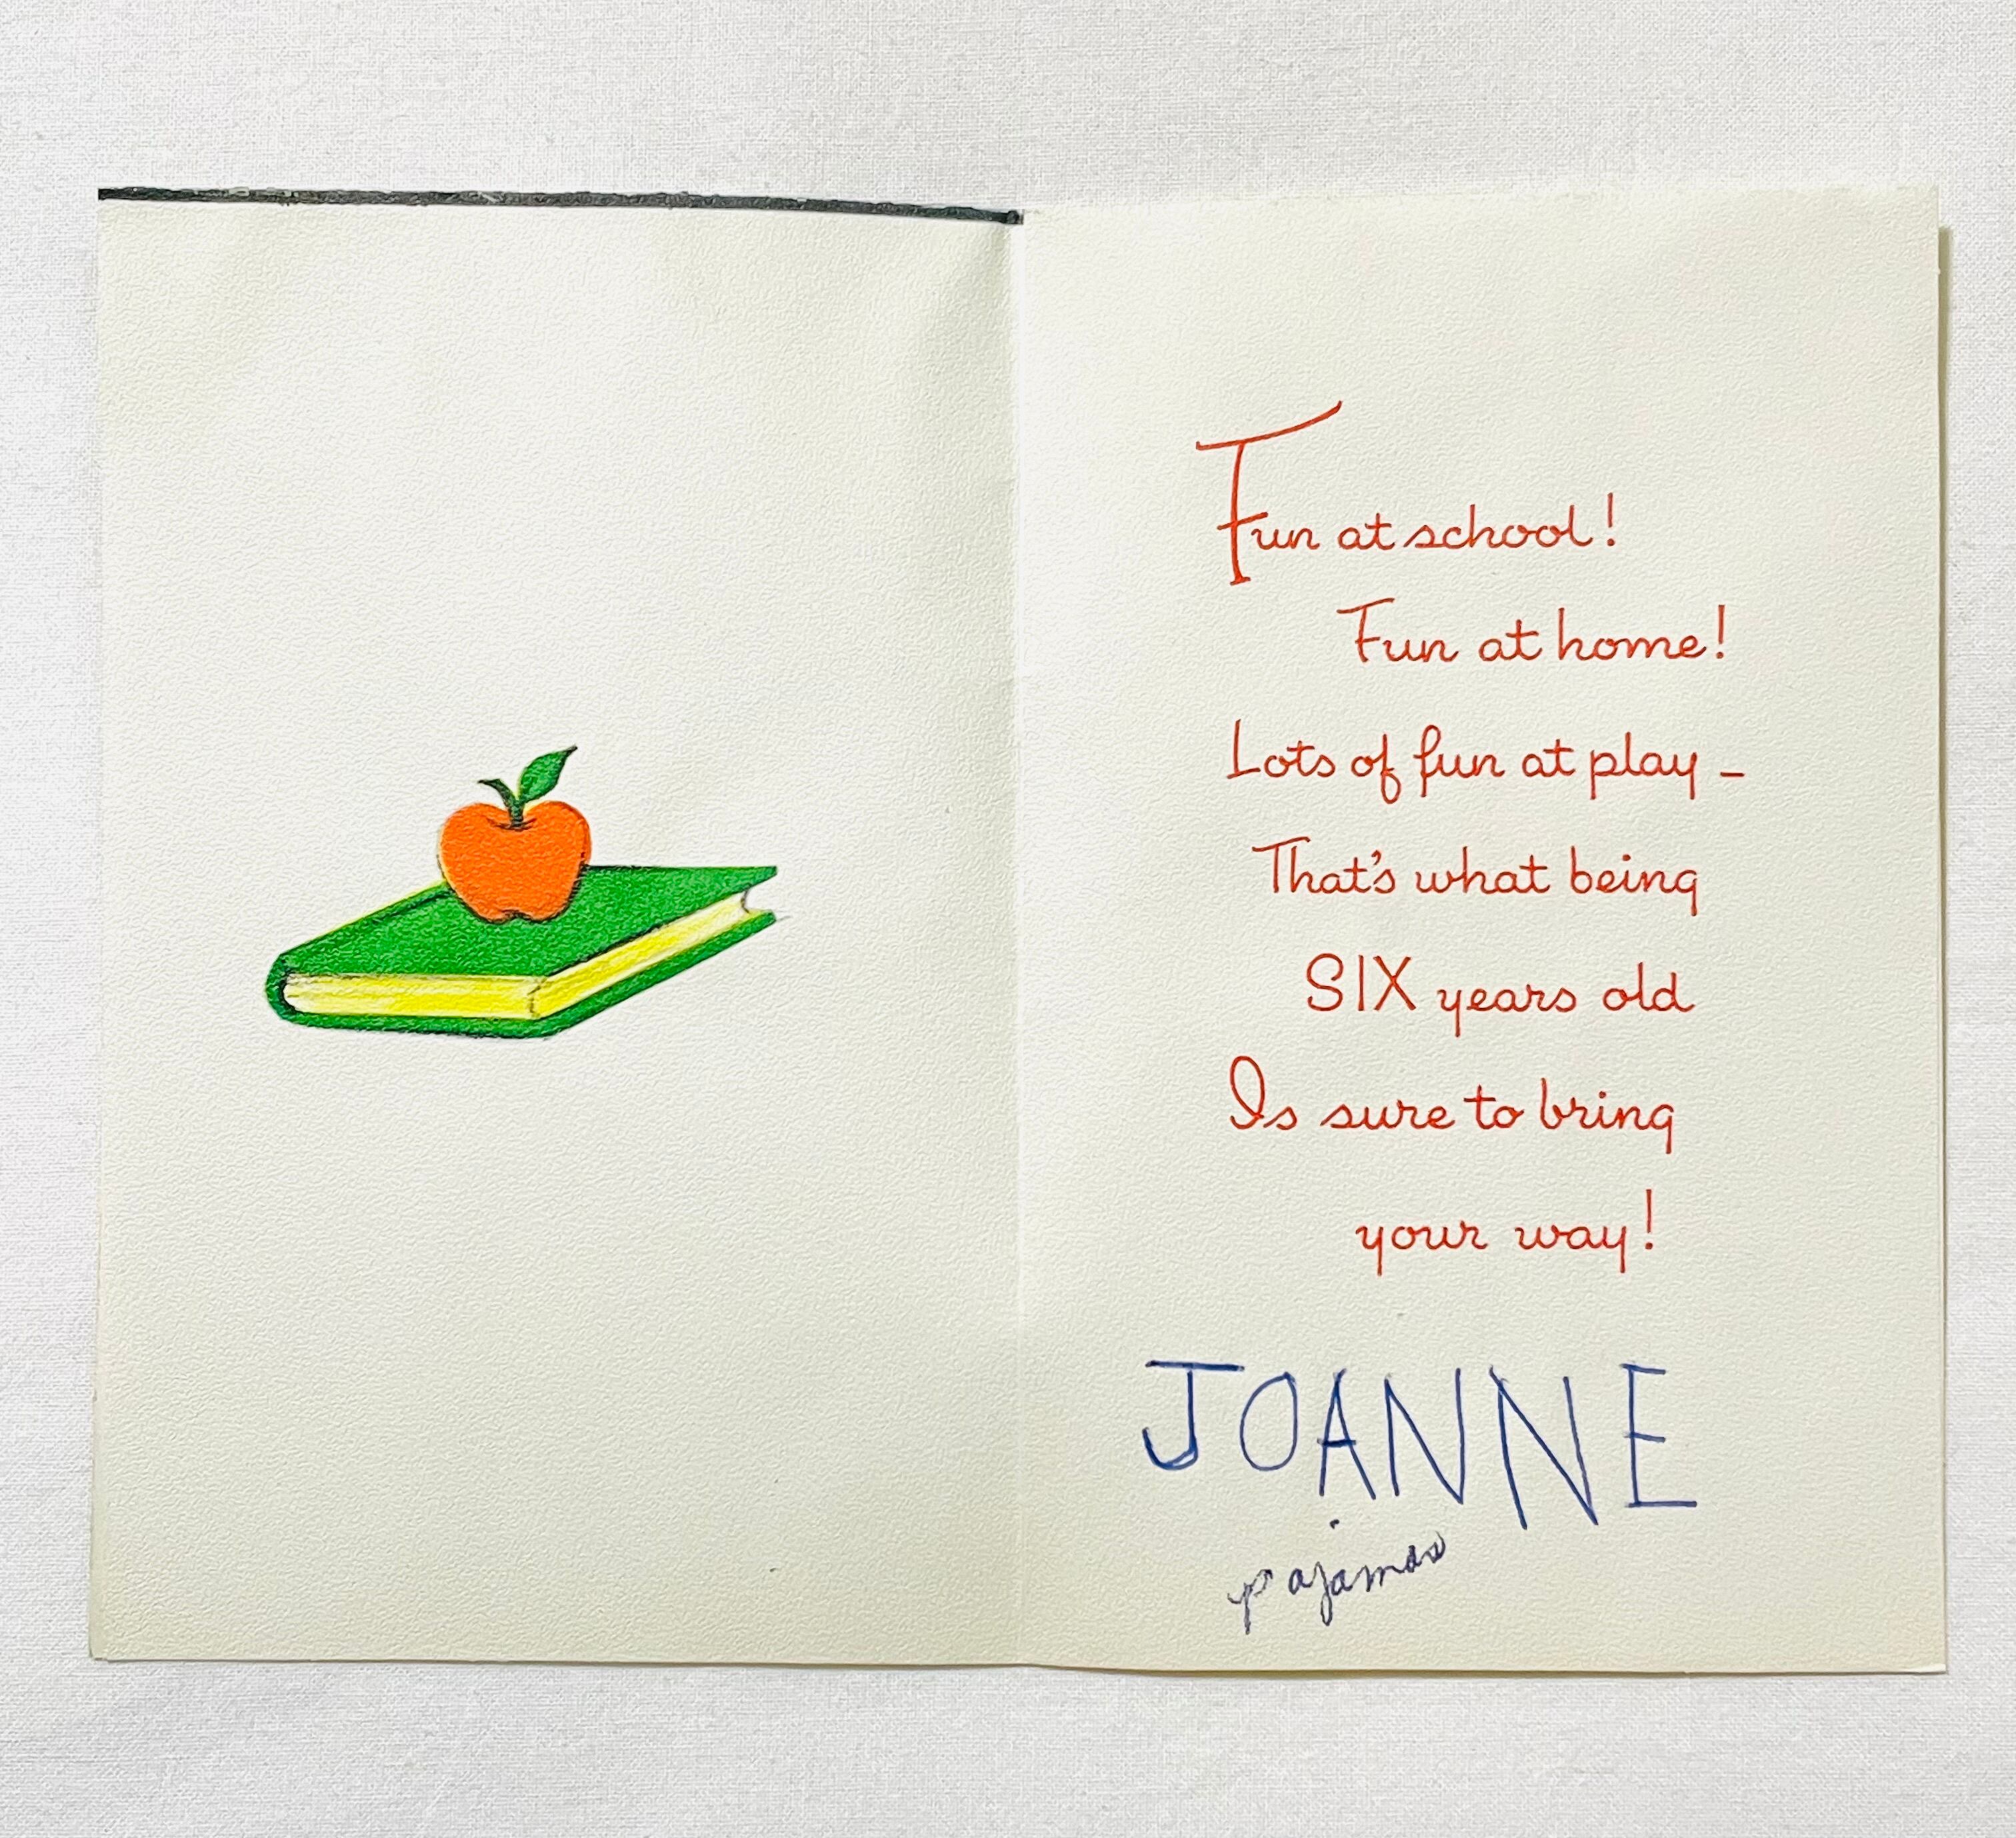 Fun at school!
Fun at home!
Lots of fun at play –
That's what being
SIX years old
Is sure to bring
your way!
JOANNE
pajamas